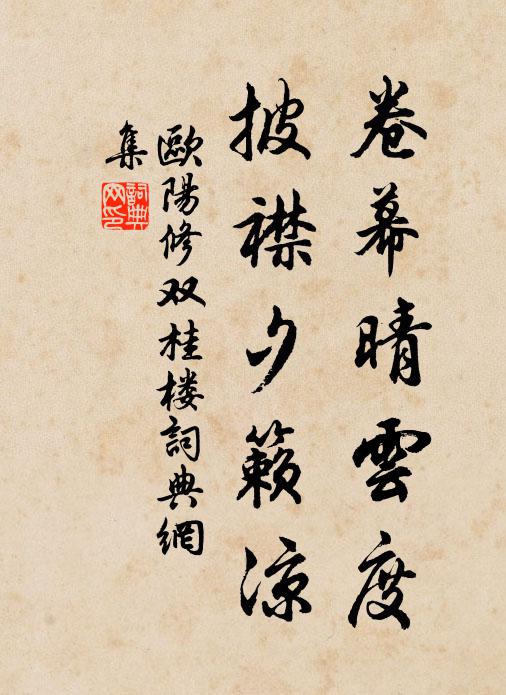 卷幕晴雲度
披襟夕籟涼
歐陽修双桂楼詞典網
集
詞典网印